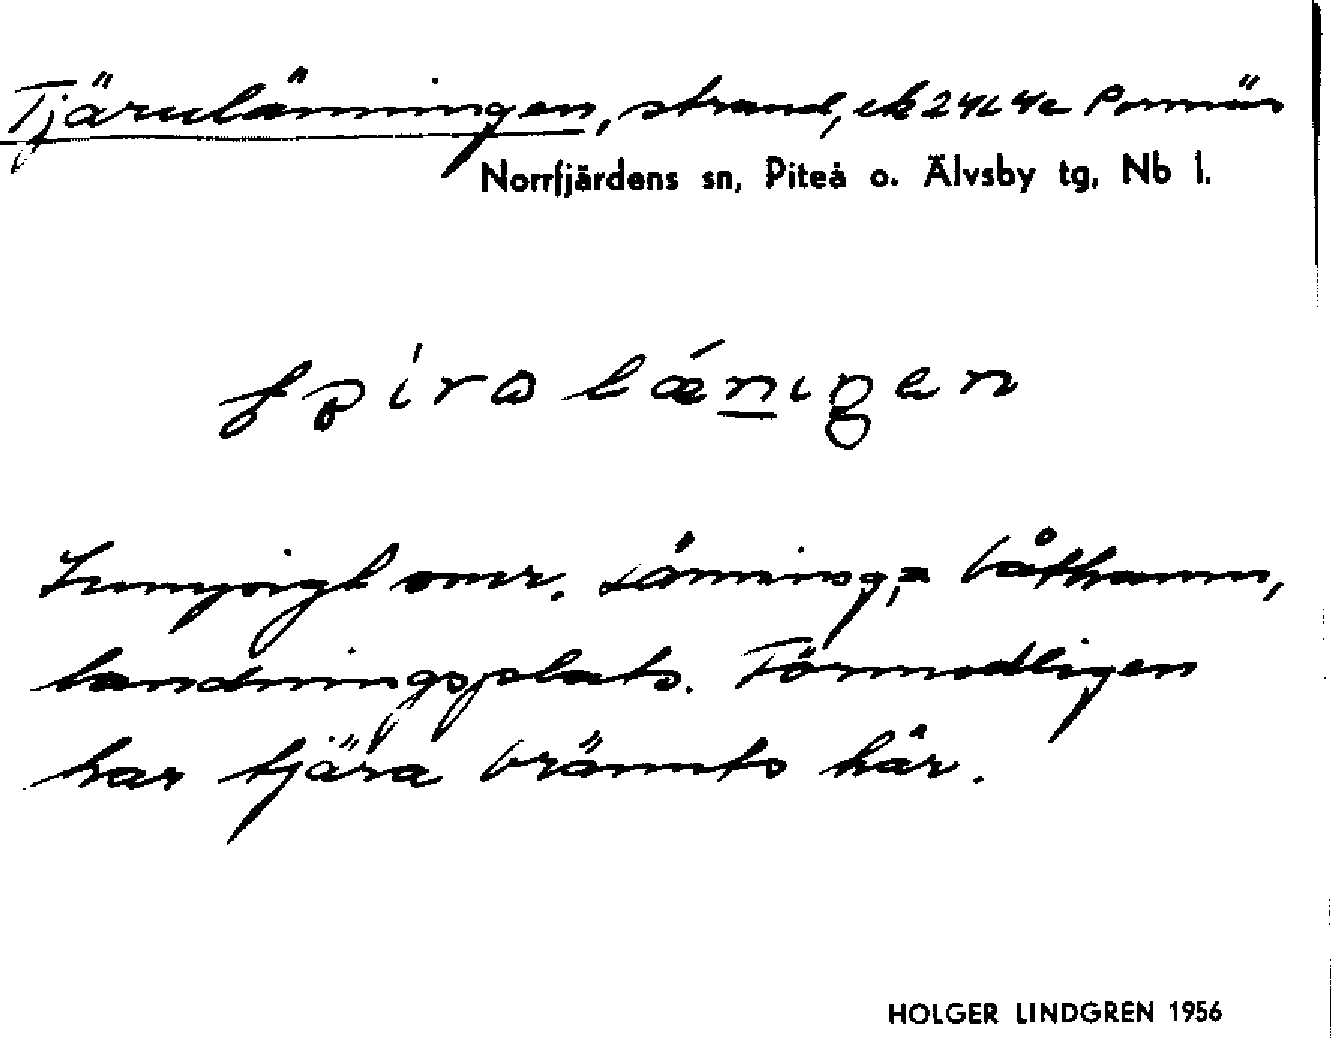 Tjärulänningen, strand, ek 24L4c Pornäs
Norrfjärdens sn, Piteå o. Älvsby tg, Nb l.
ʃpíraláeningen
omr. Länning = båthamn,
landningsplats. Förmodligen
har tjära bränts här.
HOLGER LINDGREN 1956